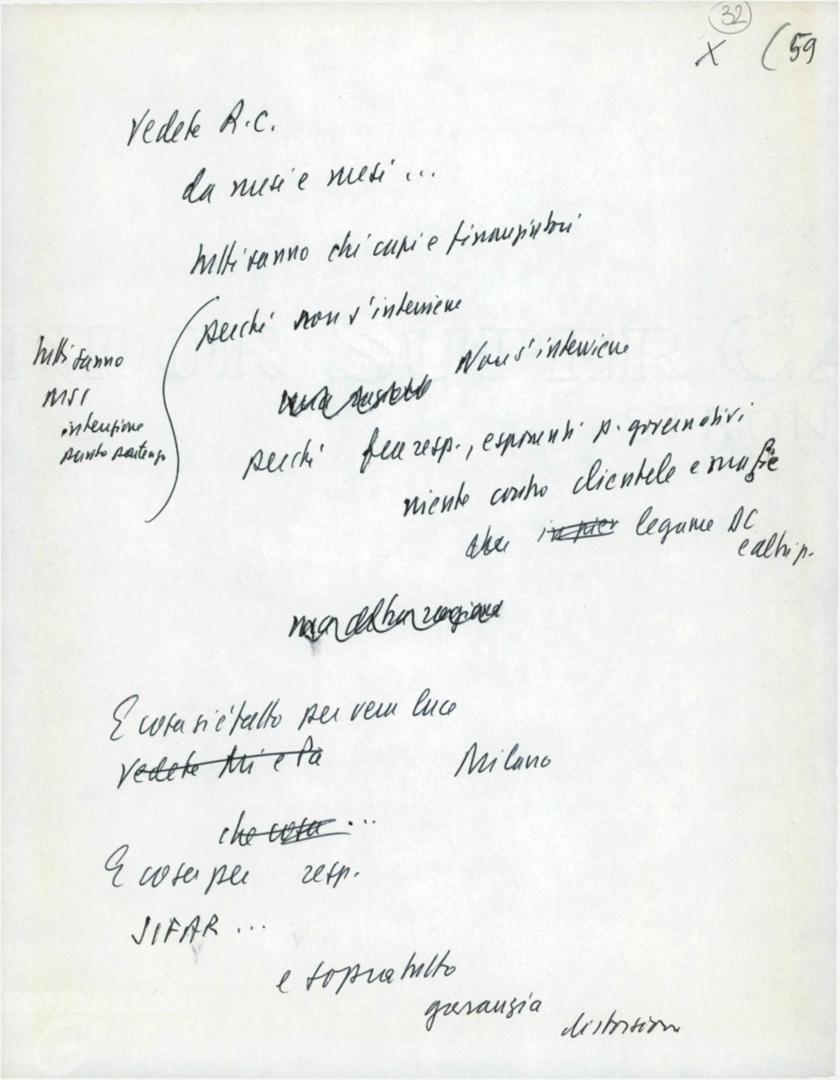 32
X (59
Vedete R.C.
da mesi e mesi ...
tutti sanno chi capi e finanziatori
perché non s'interviene
Tutti sanno
MSI
intenzione
Non s'interviene
perché fra resp., esponenti p. governativi
niente contro clientele e mafie
che legame DC
e altri p.
E cosa si è fatto per vera luce
Vedete Mi e Pa
Milano
che cosa ...
E cosa per resp.
SIFAR ...
e soprattutto
garanzia
distorsioni